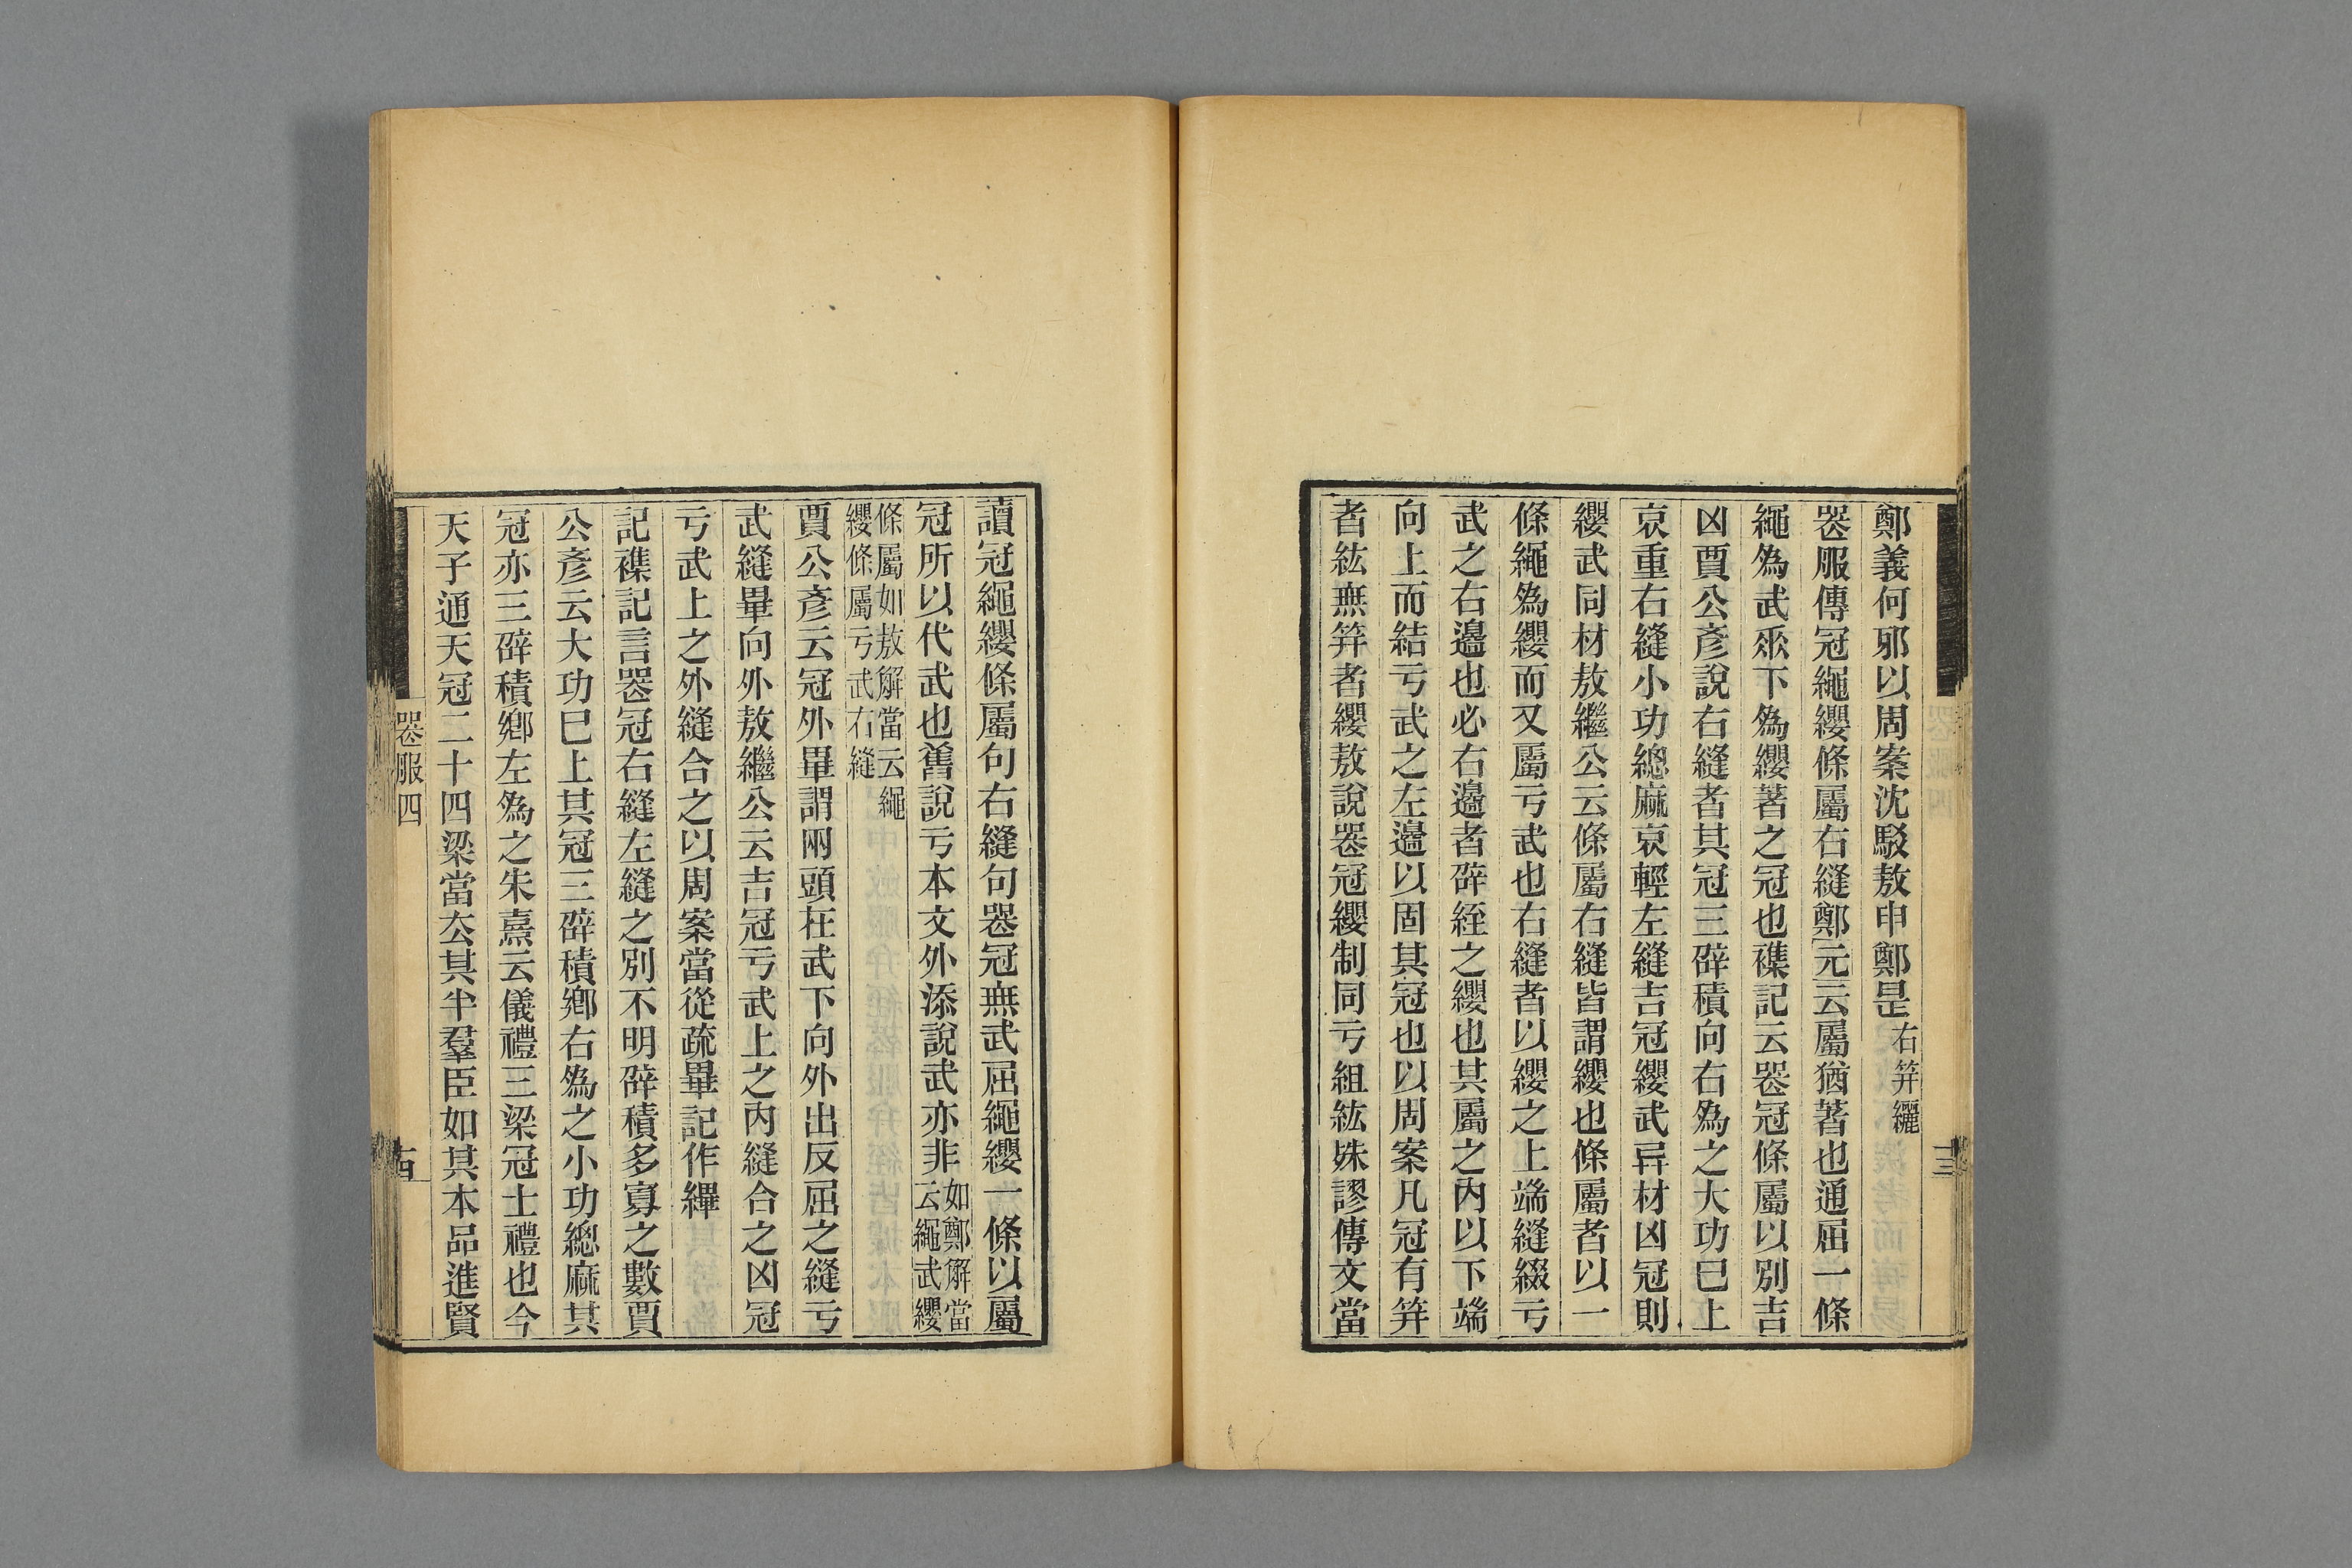 鄭義何邪以周案沈駁敖申鄭是右笄纚
喪服傳冠繩纓條屬右縫鄭元云屬猶著也通屈一條
繩爲武垂下爲纓著之冠也襍記云喪冠條屬以別吉
凶賈公彥說右縫者其冠三辟積向右爲之大功已上
哀重右縫小功緦麻哀輕左縫吉冠纓武异材凶冠則
纓武同材敖繼公云條屬右縫皆謂纓也條屬者以一
條繩爲纓而又屬亏武也右縫者以纓之上耑縫綴亏
武之右邊也必右邊者辟絰之纓也其屬之內以下端
向上而結亏武之左邊以固其冠也以周案凡冠有笄
者紘無笄者纓敖說喪冠纓制同亏組紘姝謬傳文當
三
讀冠繩纓條屬句右縫句喪冠無武屈繩纓一條以屬
冠所以代武也舊說亏本文外添說武亦非如鄭解當云繩武纓
條屬如敖解當云繩纓條屬亏武右縫
賈公彥云冠外畢謂兩頭在武下向外出反屈之縫亏
武縫畢向外敖繼公云吉冠亏武上之內縫合之凶冠
亏武上之外縫合之以周案當從疏畢記作縪
記襍記言喪冠右縫左縫之別不明辟積多寡之數賈
公彥云大功已上其冠三辟積鄉右爲之小功緦麻其
冠亦三辟積鄉左爲之朱熹云儀禮三梁冠士禮也今
天子通天冠二十四梁當厺其半羣臣如其本品進賢
喪服四